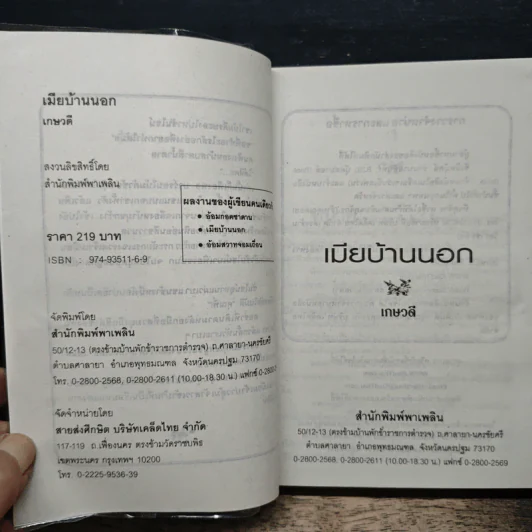 เมียบ้านนอก
เกษวดี
สงวนลิขสิทธิ์โดย
สำนักพิมพ์พาเพลิน
ราคา 219 บาท
ISBN : 974-93511-6-9
ผลงานของผู้เขียนคนเดียวกัน
• อ้อมกอดซาตาน
• เมียบ้านนอก
• อ้อมสวาทจอมเถื่อน
จัดพิมพ์โดย
สำนักพิมพ์พาเพลิน
50/12-13 (ตรงข้ามบ้านพักข้าราชการตำรวจ) ถ.ศาลายา-นครชัยศรี
ตำบลศาลายา อำเภอพุทธมณฑล จังหวัดนครปฐม 73170
โทร. 0-2800-2568, 0-2800-2611 (10.00-18.30 น.) แฟกซ์ 0-2800-2
จัดจำหน่ายโดย
สายส่งศึกษิต บริษัทเคล็ดไทย จำกัด
117-119 ถ.เฟื่องนคร ตรงข้ามวัดราชบพิธ
เขตพระนคร กรุงเทพฯ 10200
โทร. 0-2225-9536-39
เมียบ้านนอก
เกษวดี
สำนักพิมพ์พาเพลิน
50/12-13 (ตรงข้ามบ้านพักข้าราชการตำรวจ) ถ.ศาลายา-นครชัยศรี
ตำบลศาลายา อำเภอพุทธมณฑล จังหวัดนครปฐม 73170
0-2800-2568, 0-2800-2611 (10.00-18.30 น.) แฟกซ์ 0-2800-2569